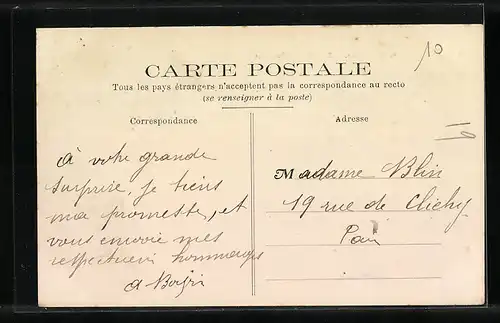 10
CARTE POSTALE
Tous les pays étrangers n'acceptent pas la correspondance au recto
(se renseigner à la poste)
Correspondance
à votre grande
surprise, je tiens
ma promesse, et
vous envoie mes
respectueux hommages
Adresse
Madame Blin
19 rue de Clichy